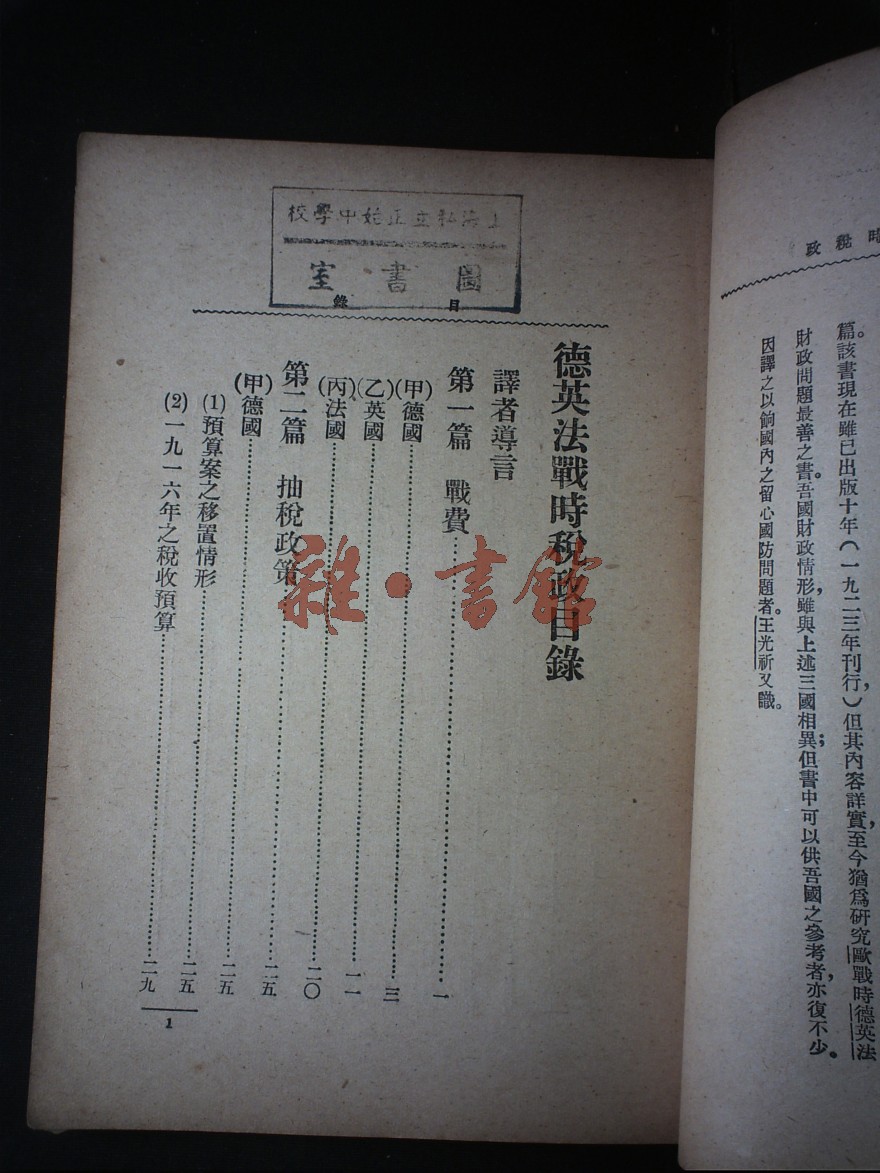 時稅政
篇。該書現在雖已出版十年(一九二三年刊行,)但其內容詳實,至今猶爲研究歐戰時德英法
財政問題最善之書。吾國財政情形,雖與上述三國相異;但書中可以供吾國之參考者,亦復不少。
因譯之以餉國內之留心國防問題者。王光祈又識。
上海私立正始中學校
圖書室
目錄
德英法戰時稅政目錄
譯者導言
第一篇 戰費……一
(甲)德國……三
(乙)英國……一一
(丙)法國……二〇
第二篇 抽稅政策……二五
(甲)德國……二五
(1)預算案之移置情形……二五
(2)一九一六年之稅收預算……二九
1
雜·書館